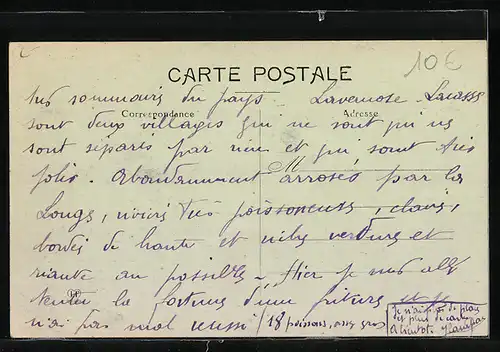 10€
CARTE POSTALE
Correspondance
Adresse
très sommairs du pays - Lavernose - Lacasse
sont deux villages qui ne sont
sont séparés par rien et qui sont très
jolis. Abondamment arrosés par la
Longe, rivière très poissoneuse, claire,
bordée de haute et riche verdure et
riante au possible - Hier je suis allé
tenter la fortune d'une friture et je
n'ai pas mal reussi / 18 poissons, assez gros
Je n'ai pas de place